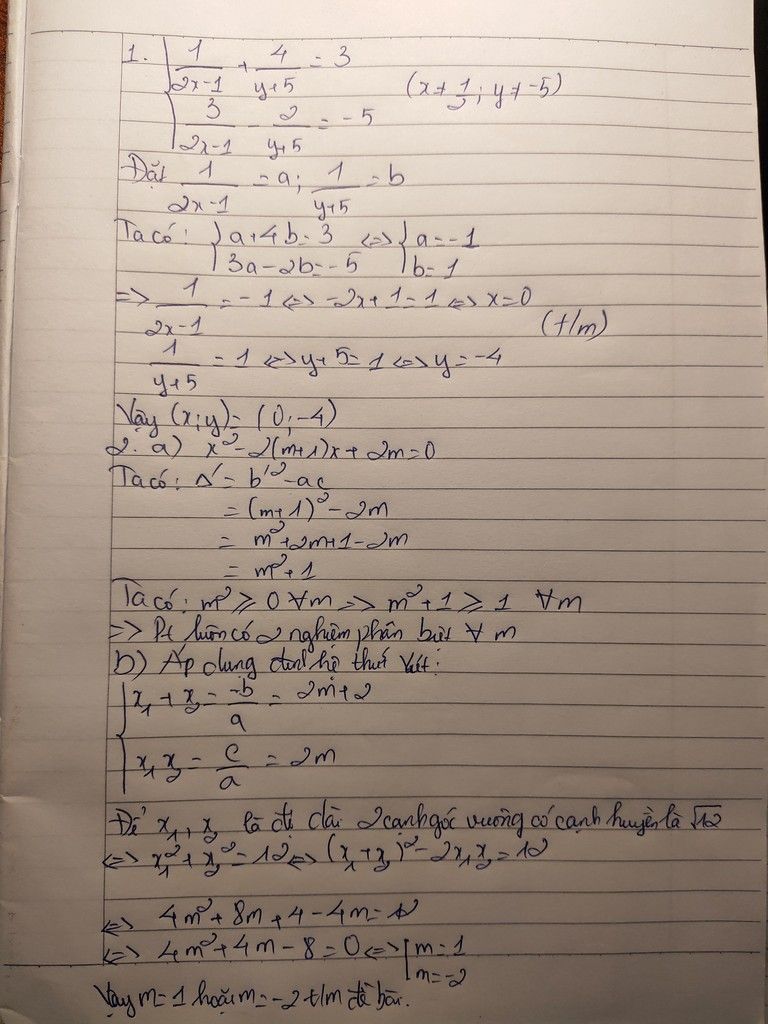 1. { 1/(2x-1) + 4/(y+5) = 3
(x ≠ 1/2; y ≠ -5)
3/(2x-1) - 2/(y+5) = -5
Đặt 1/(2x-1) = a; 1/(y+5) = b
Ta có: { a+4b=3 <=> { a=-1
3a-2b=-5 b=1
=> 1/(2x-1) = -1 <=> -2x+1=1 <=> x=0
(t/m)
1/(y+5) = 1 <=> y+5=1 <=> y=-4
Vậy (x;y)= (0;-4)
2. a) x²-2(m+1)x+2m=0
Ta có: Δ' = b'²-ac
= (m+1)²-2m
= m²+2m+1-2m
= m²+1
Ta có: m² ⩾ 0 ∀m => m²+1 ⩾ 1 ∀m
=> Pt luôn có 2 nghiệm phân biệt ∀ m
b) Áp dụng định hệ thức Viét:
{ x₁+x₂ = -b/a = 2m+2
x₁x₂ = c/a = 2m
Để x₁, x₂ là độ dài 2 cạnh góc vuông có cạnh huyền là √12
<=> x₁²+x₂²=12 <=> (x₁+x₂)²-2x₁x₂=12
<=> 4m²+8m+4-4m=12
<=> 4m²+4m-8=0 <=> [ m=1
m=-2
Vậy m=1 hoặc m=-2 t/m đề bài.